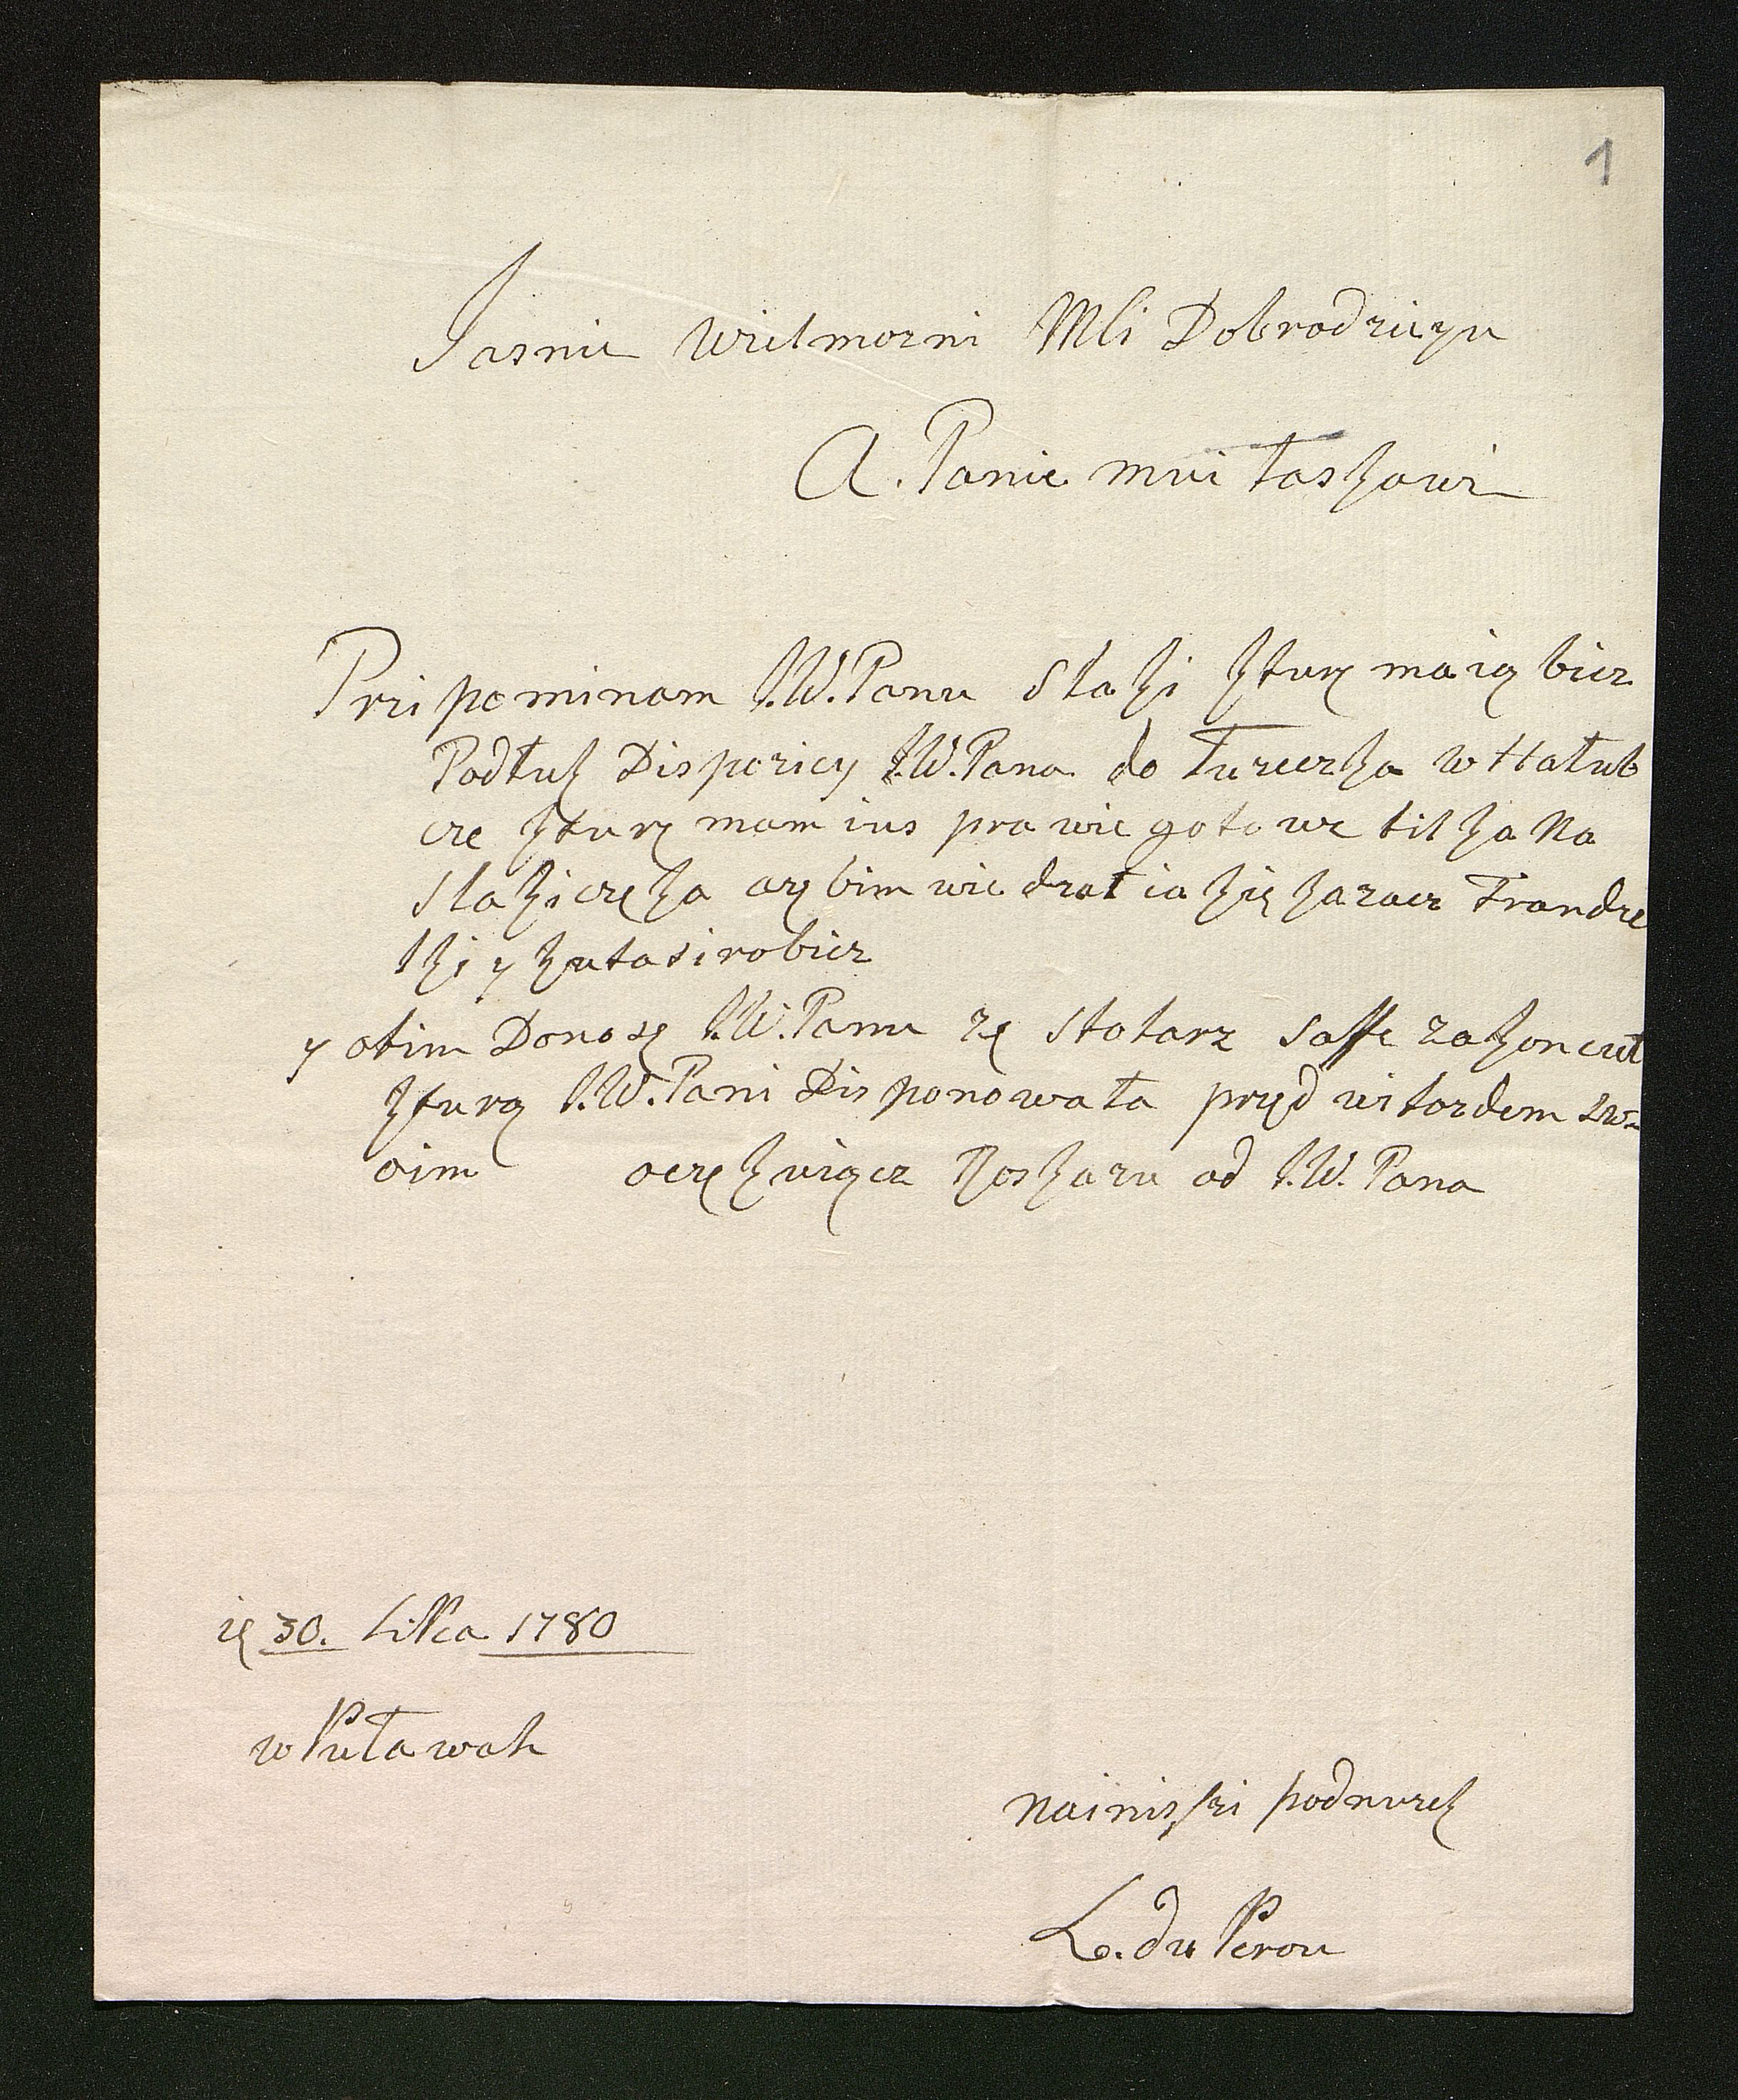 1
Jasnie Wielmozni Mli Dobrodzieyu
A. Panie mui łaskawi
Pripominam J.W. Panu staki kturę maią bicz
Podłuk Disposicy J.W. Pana do Łuzeczka w Hałub
cze kturę mam ius prawie gotowe tilka Na
staki czeka azębim wiedzał iakię kazacz Frandze
lki y kutasi robicz
y otim Donoszę J.W. Panu zę stolarz saffe zakonczeł
kturą J.W. Pani Disponowała pręd wiiazdem zw=
oim oczękuięcz Roskazu od J.W. Pana
ię 30. Lipca 1780
w Puławah
Nainiszi podnuzek
L. du Perou